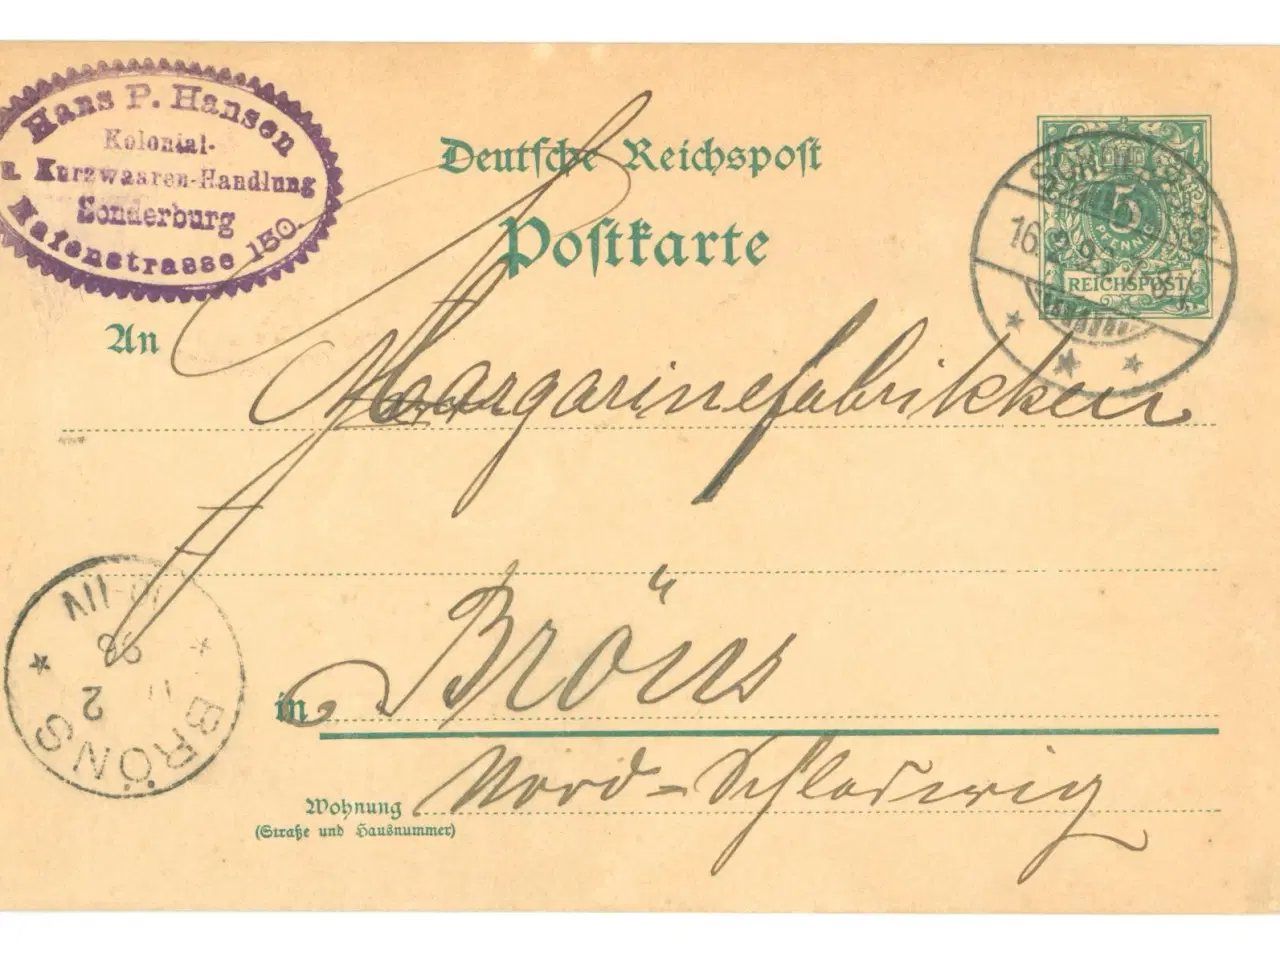 Hans P. Hansen
Kolonial-
u. Kurzwaaren-Handlung
Sonderburg
Hafenstrasse 150.
Deutsche Reichspost
Postkarte
5
PFENNIG
REICHSPOST
16. 2.
An Margarinefabrikken
in Bröns
Nord-Schleswig
Wohnung
(Straße und Hausnummer)
BRÖNS
2